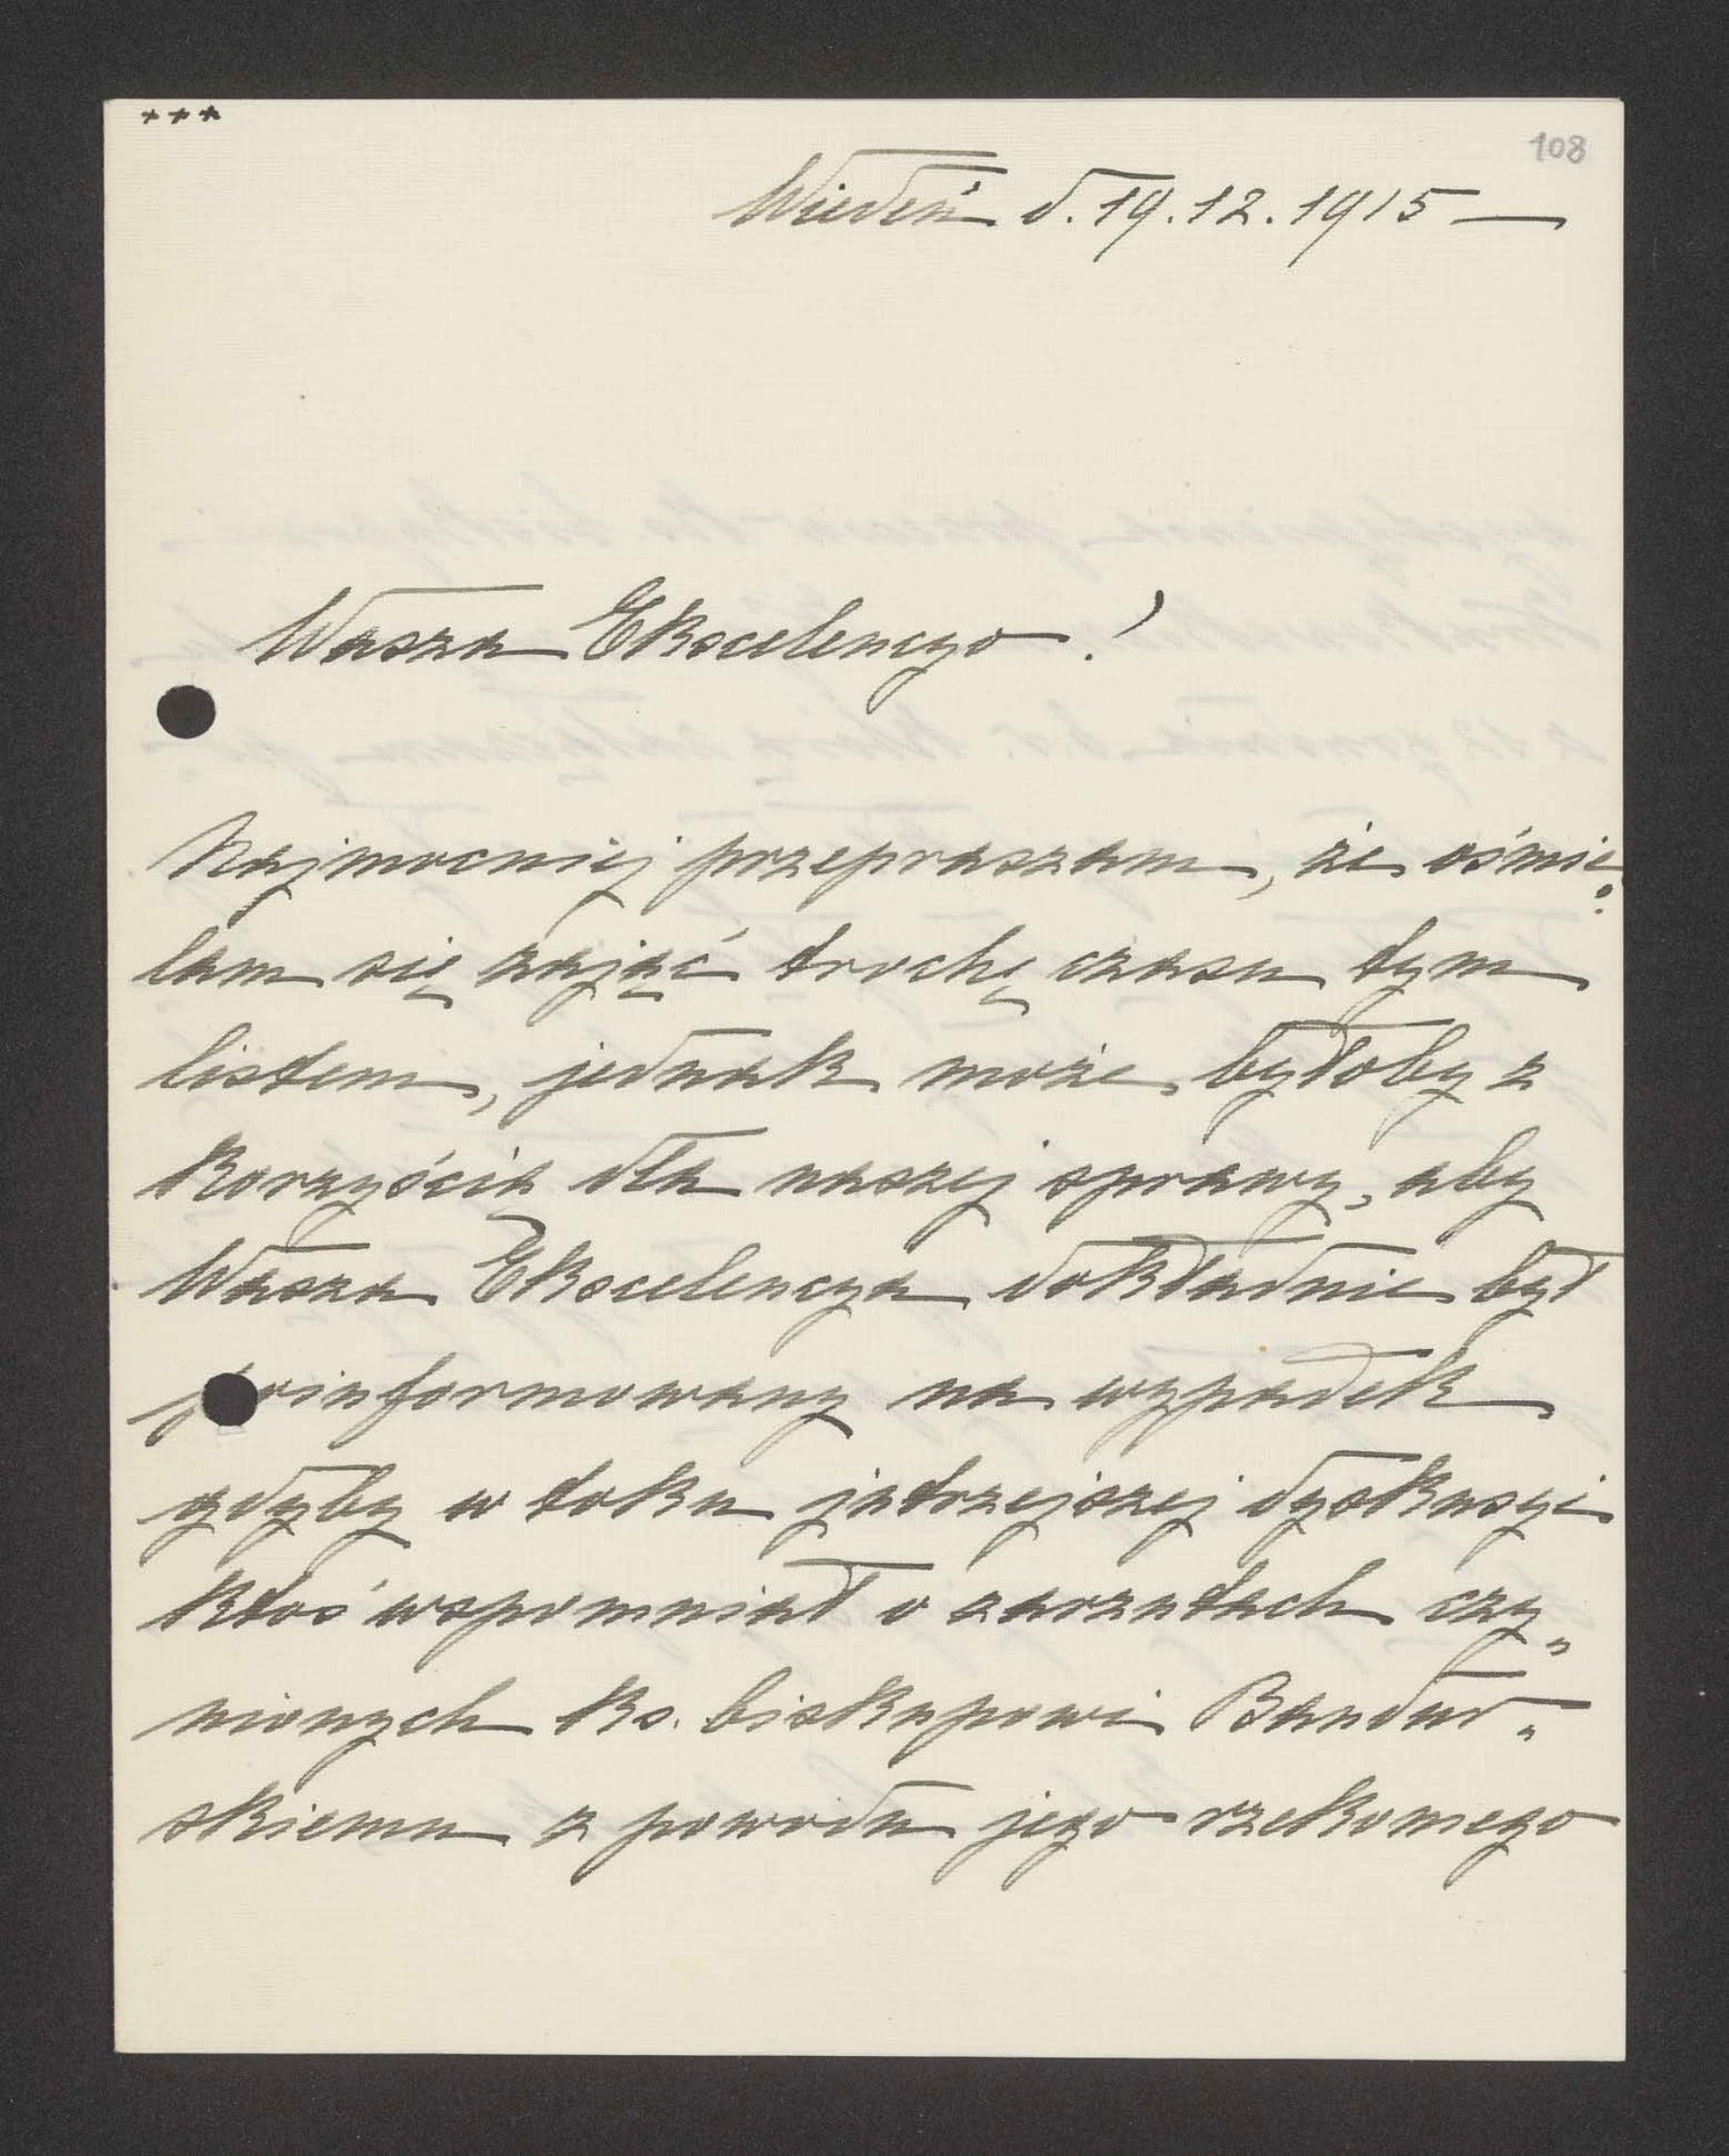 ***
108
Wiedeń d. 19.12.1915 —
Wasza Ekscelencyo!
Najmocniej przepraszam, że ośmie„
lam się zająć trochę czasu tym
listem, jednak może byłoby z
korzyścią dla naszej sprawy, aby
Wasza Ekscelencya dokładnie był
poinformowany na wypadek
gdyby w toku jutrzejszej dyskusyi
ktoś wspomniał o zarzutach czy„
nionych ks. biskupowi Bandur„
skiemu z powodu jego rzekomego